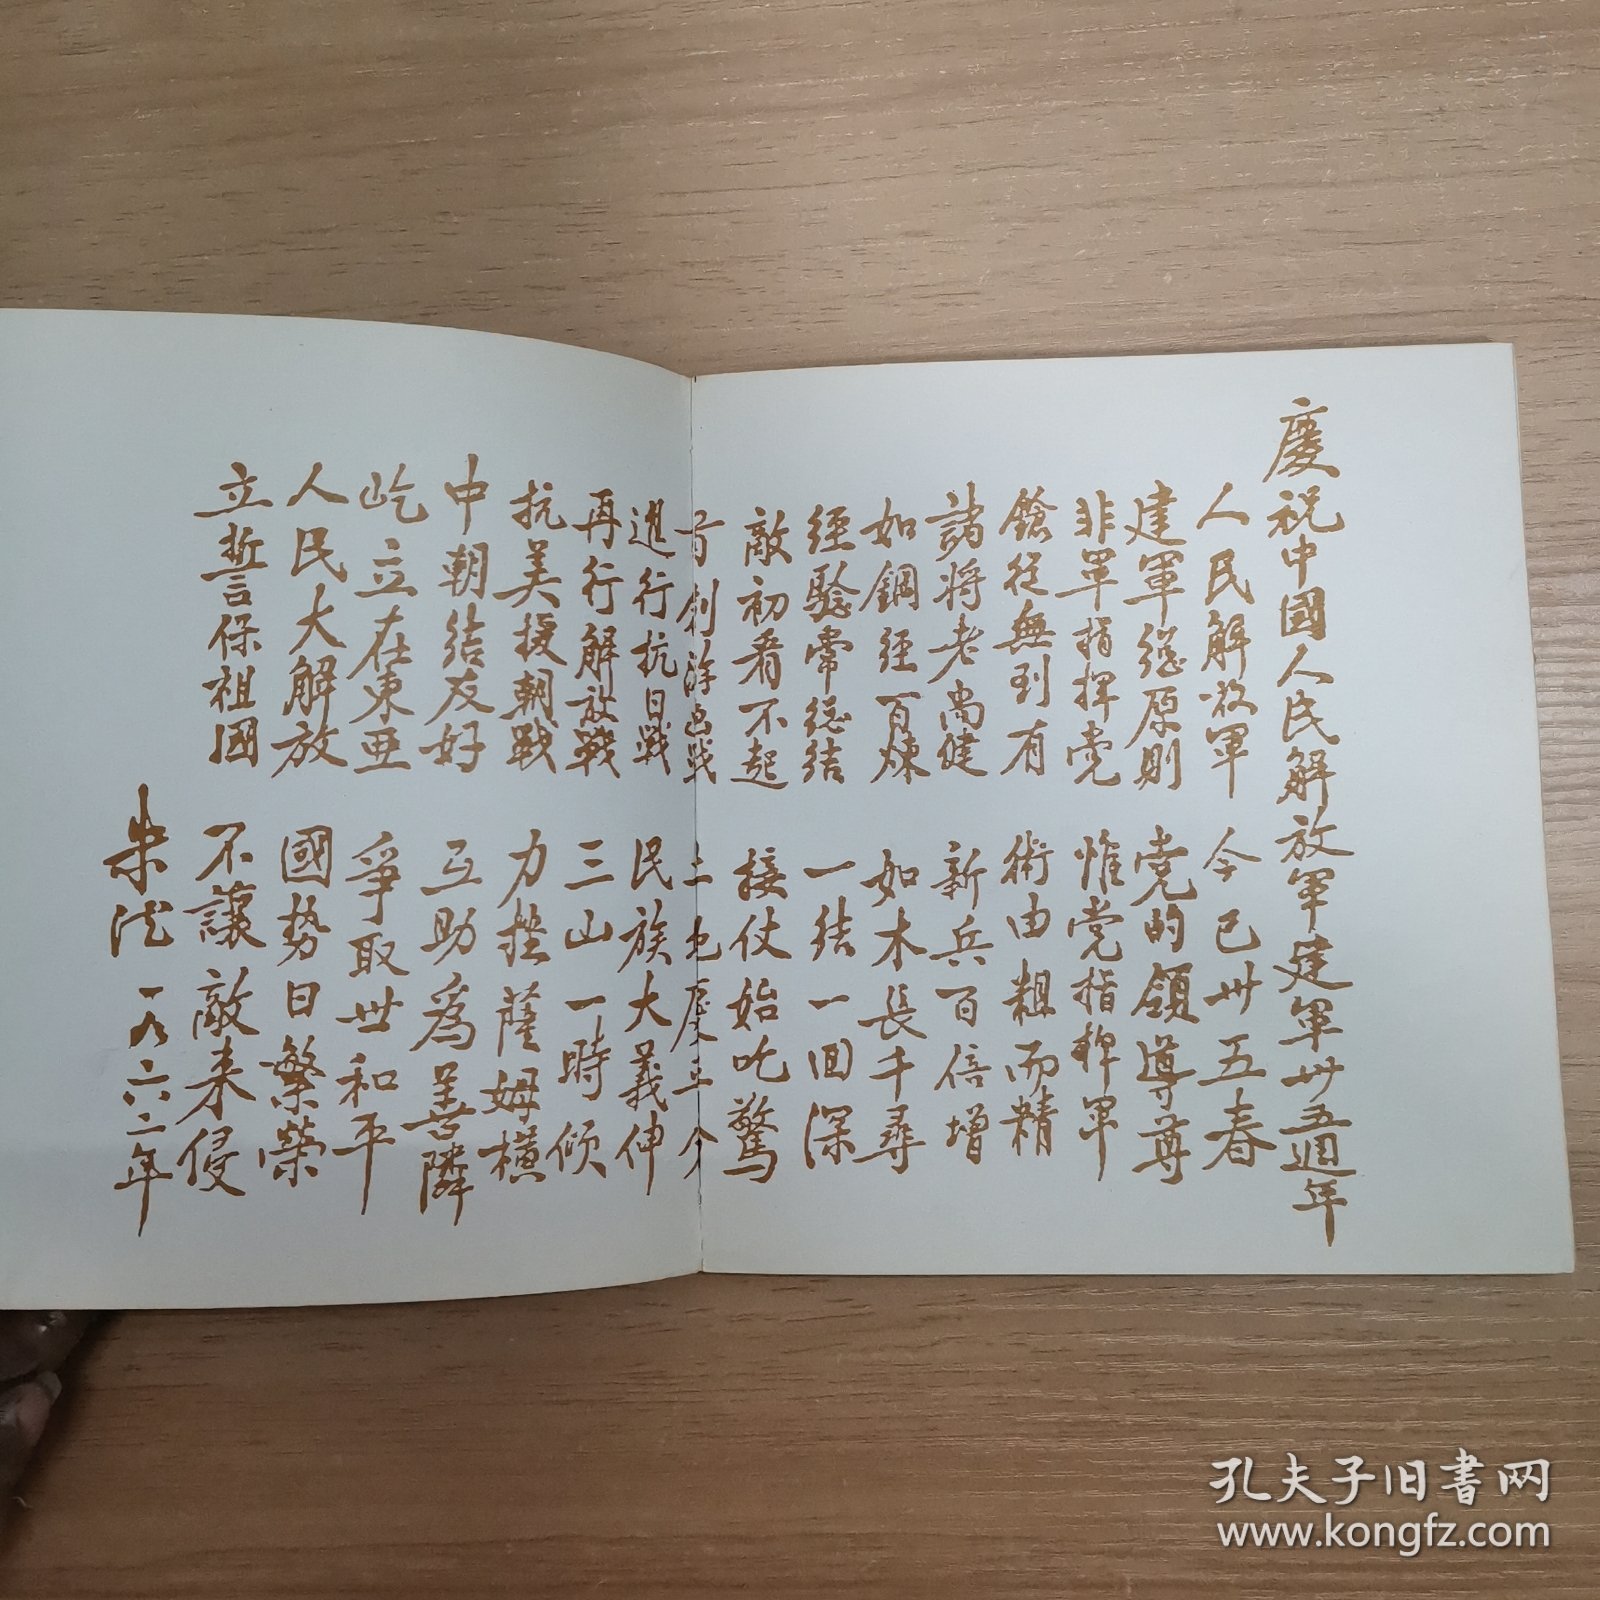 慶祝中國人民解放軍建軍卅五週年
人民解放軍 今已卅五春
建軍總原則 党的領導尊
非軍指揮党 惟党指揮軍
鎗從無到有 術由粗而精
諸將老尚健 新兵百倍增
如鋼經百煉 如木長千尋
經驗常總結 一結一回深
敵初看不起 接仗始吃驚
首創游击战 土地
進行抗日戰 民族大義伸
再行解放戰 三山一時傾
抗美援朝戰 力挫薩姆橫
中朝結友好 互助為善隣
屹立在東亜 爭取世和平
人民大解放 國势日繁榮
立誓保祖國 不讓敵来侵
朱德 一九六二年
孔夫子旧书网
www.kongfz.com